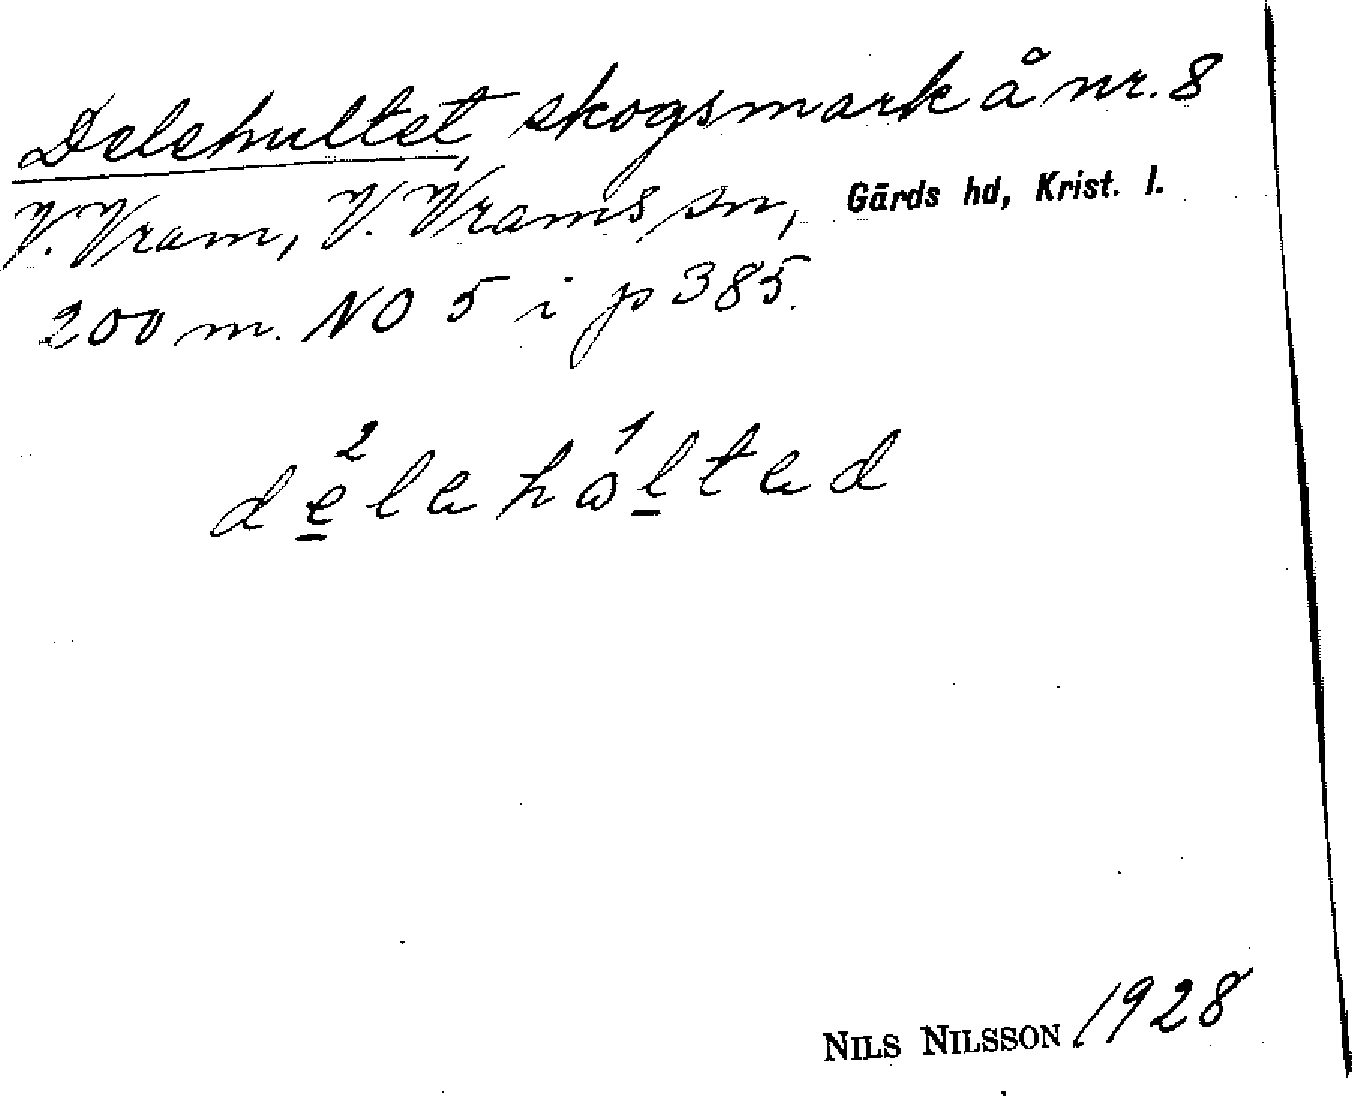 Delehultet, skogsmark å nr. 8
V. Vram, V. Vrams sn, Gärds hd, Krist. l.
200 m. NO 5 i p 385.
NILS NILSSON 1928